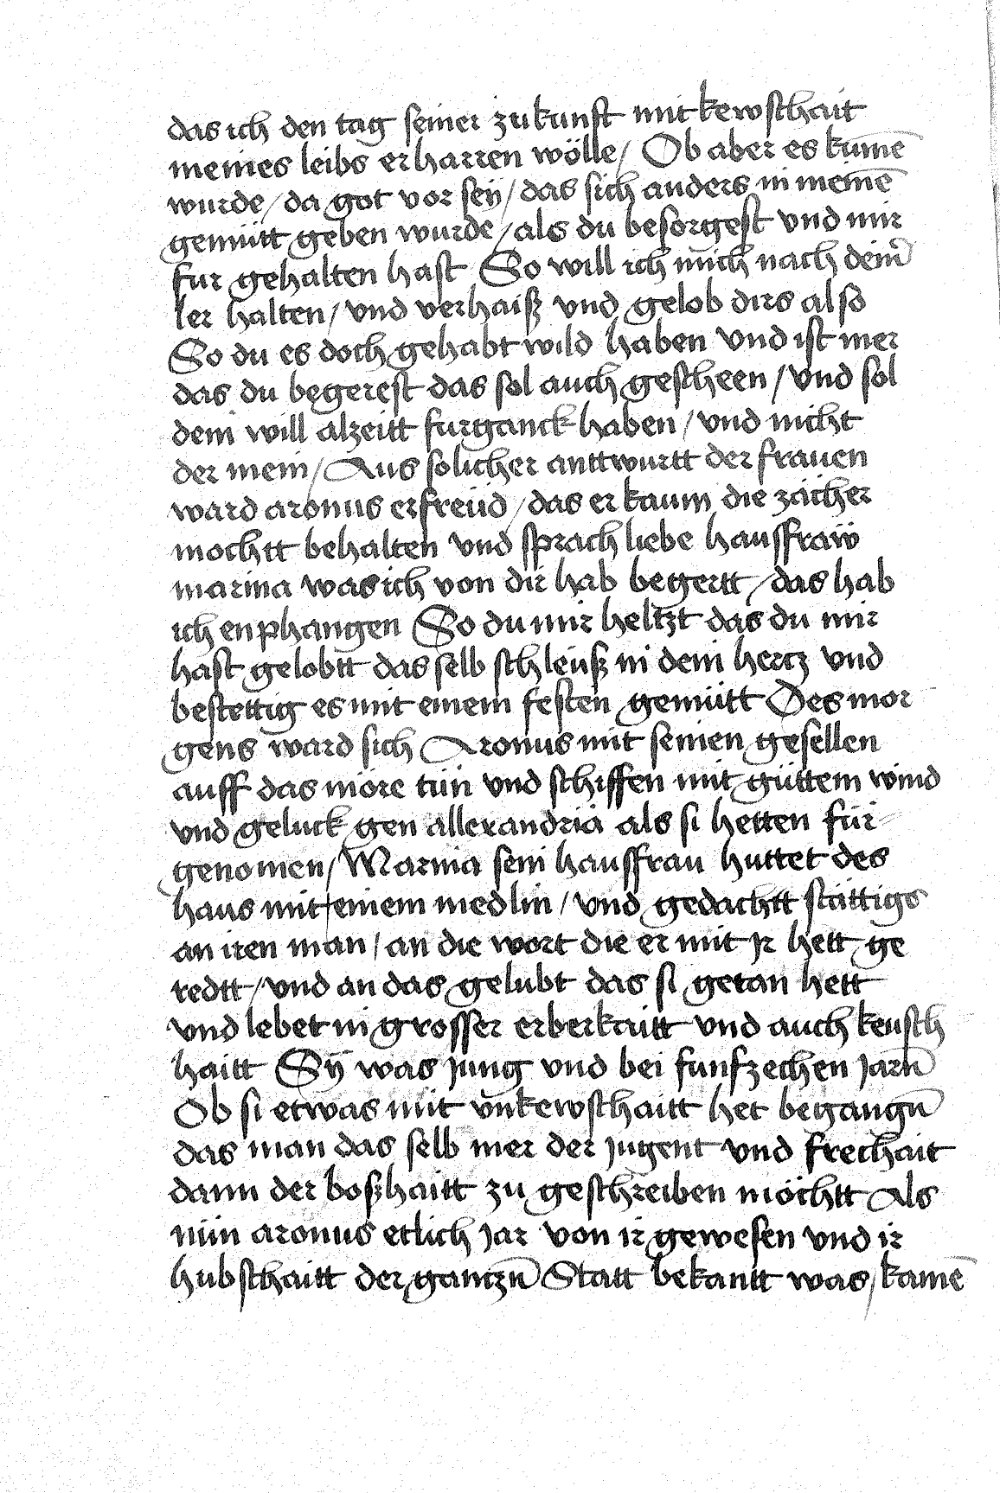 das ich den tag seiner zukunft mit kewschait
meines leibs erharren wölle / Ob aber es kumē
wurde / da got vor seÿ / das sich anders in meinē
gemütt geben wurde / als du besorgest vnd mir
fur gehalten hast So will ich mich nach deinr̄
ler halten / vnd verhaiß vnd gelob dirs also
So du es doch gehabt wild haben vnd ist mer
das du begerest das sol auch gescheen / vnd sol
dein will alzeitt furganck haben / vnd nicht
der mein / Aus solicher anttwurtt der frauen
ward aronus erfreüd / das er kaum die zächer
mochtt behalten vnd sprach liebe hausfraẅ
marina was ich von dir hab begertt / das hab
ich enphangen So du mir heltzt das du mir
hast gelobtt das selb schleuß in dein hertz vnd
bestettig es mit einem festen gemütt Des mor
gens ward sich Aronus mit seinen gesellen
auff das möre tün vnd schiffen mit güttem wind
vnd geluck gen allexandria als si hetten für
genomen / Marina sein hausfrau huttet des
haus mit einem medlin / vnd gedachtt stättigs
an iren man / an die wort die er mit jr hett ge
redtt / vnd an das gelubt das si getan hett
vnd lebet in grosser erberkaitt vnd auch keusch
haitt Sÿ was jung vnd bei funfzechen jarn̄
Ob si etwas mit vnkewschaitt het begangn̄
das man das selb mer der jugent vnd frechait
dann der boßhaitt zu geschreiben möchtt Als
nün aronus etlich jar von ir gewesen vnd ir
hubschaitt der gantzn̄ Statt bekantt was / kamē